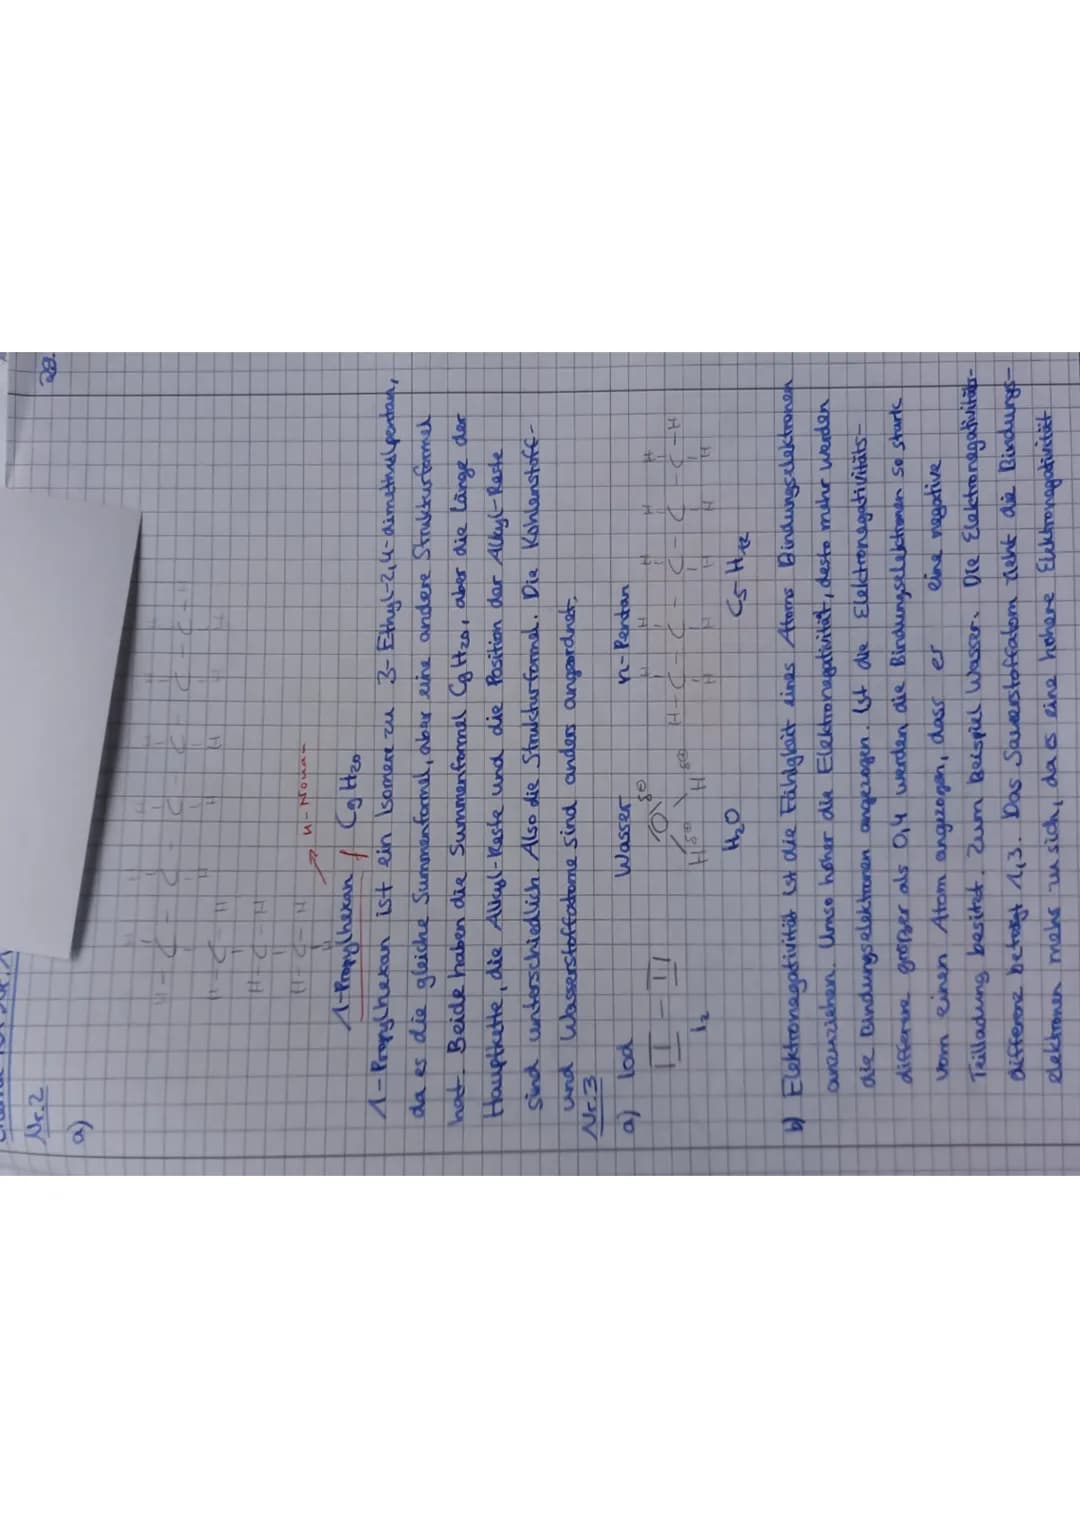 28.
Nr. 2
a)
→ n-Nonan
1-Propylhexan C9H20
1-Propylhexan ist ein Isomere zu 3-Ethyl-2,4-dimethylpentan,
da es die gleiche Summenformel, aber eine andere Strukturformel
hat. Beide haben die Summenformel C9H20, aber die Länge der
Hauptkette, die Alkyl-Reste und die Position der Alkyl-Reste
sind unterschiedlich. Also die Strukturformel. Die Kohlenstoff-
und Wasserstoffatome sind anders angeordnet.
Nr. 3
a) Iod Wasser n-Pentan
I2 H2O C5H12
b) Elektronegativität ist die Fähigkeit eines Atoms Bindungselektronen
anzuziehen. Umso höher die Elektronegativität, desto mehr werden
die Bindungselektronen angezogen. Ist die Elektronegativitäts-
differenz größer als 0,4 werden die Bindungselektronen so stark
vom einen Atom angezogen, dass er eine negative
Teilladung besitzt. Zum Beispiel Wasser. Die Elektronegativitäts-
differenz beträgt 1,3. Das Sauerstoffatom zieht die Bindungs-
elektronen mehr zu sich, da es eine höhere Elektronegativität